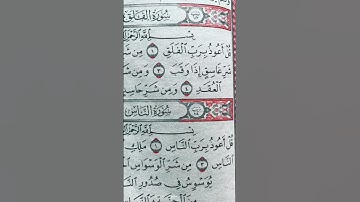 سُورَةُ الفَلَقِ
بِسْمِ ٱللَّهِ ٱلرَّحْمَٰنِ
قُلْ أَعُوذُ بِرَبِّ ٱلْفَلَقِ ١ مِن
شَرِّ غَاسِقٍ إِذَا وَقَبَ ٣ وَمِن شَرِّ
ٱلْعُقَدِ ٤ وَمِن شَرِّ حَاسِدٍ
سُورَةُ النَّاسِ
بِسْمِ ٱللَّهِ ٱلرَّحْمَٰنِ
قُلْ أَعُوذُ بِرَبِّ ٱلنَّاسِ ١ مَلِكِ
ٱلنَّاسِ ٣ مِن شَرِّ ٱلْوَسْوَاسِ
يُوَسْوِسُ فِى صُدُورِ
مِنَ ٱلْجِنَّةِ